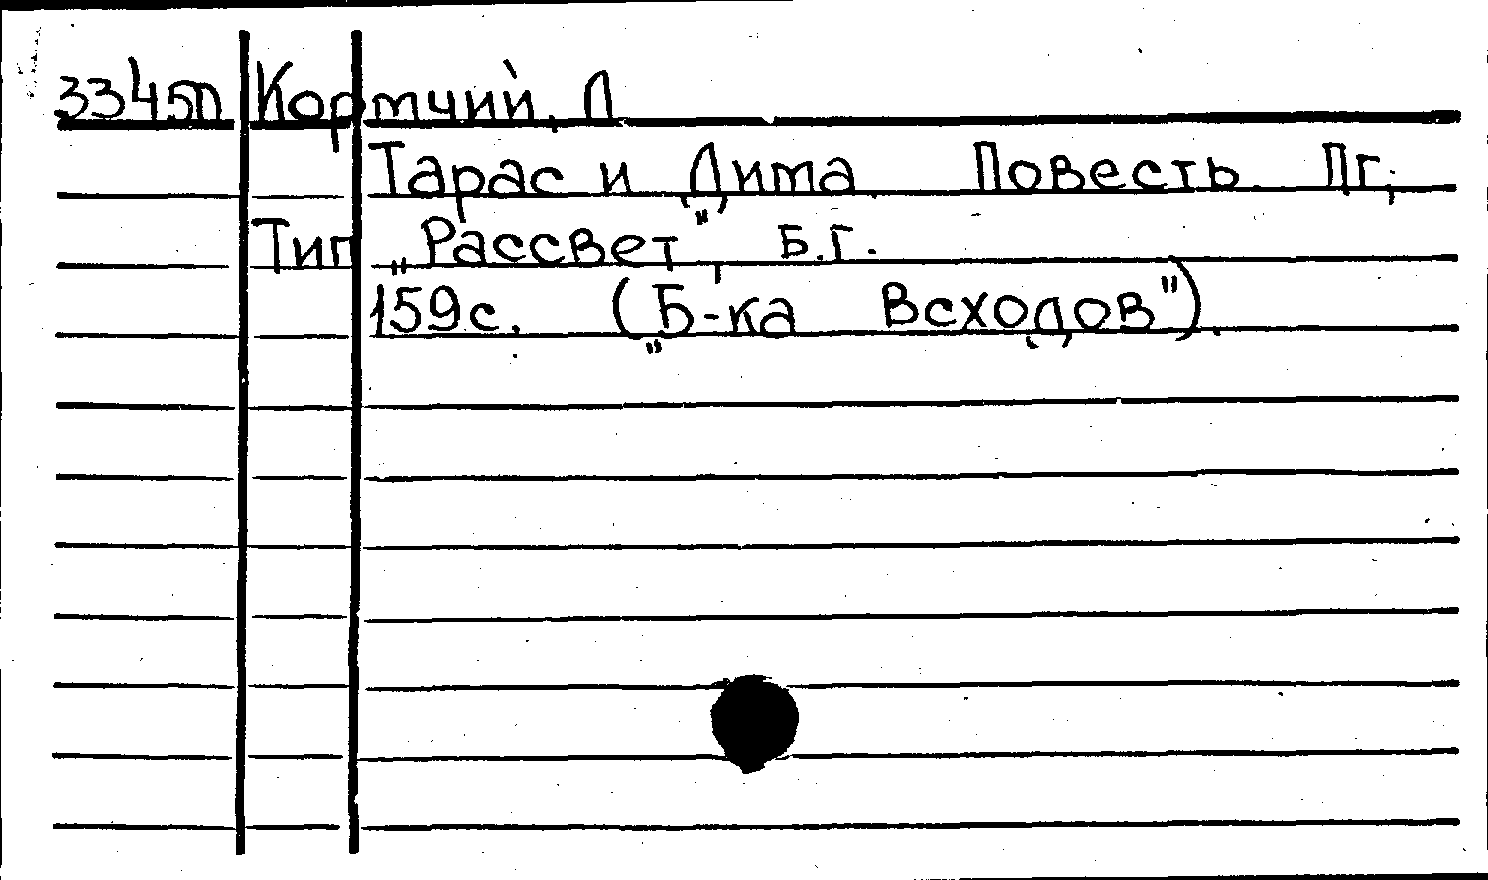 33450 Кормчий, Л
Тарас и Дима. Повесть. Пг;
Тип „Рассвет", Б.г.
159с. („Б-ка Всходов").